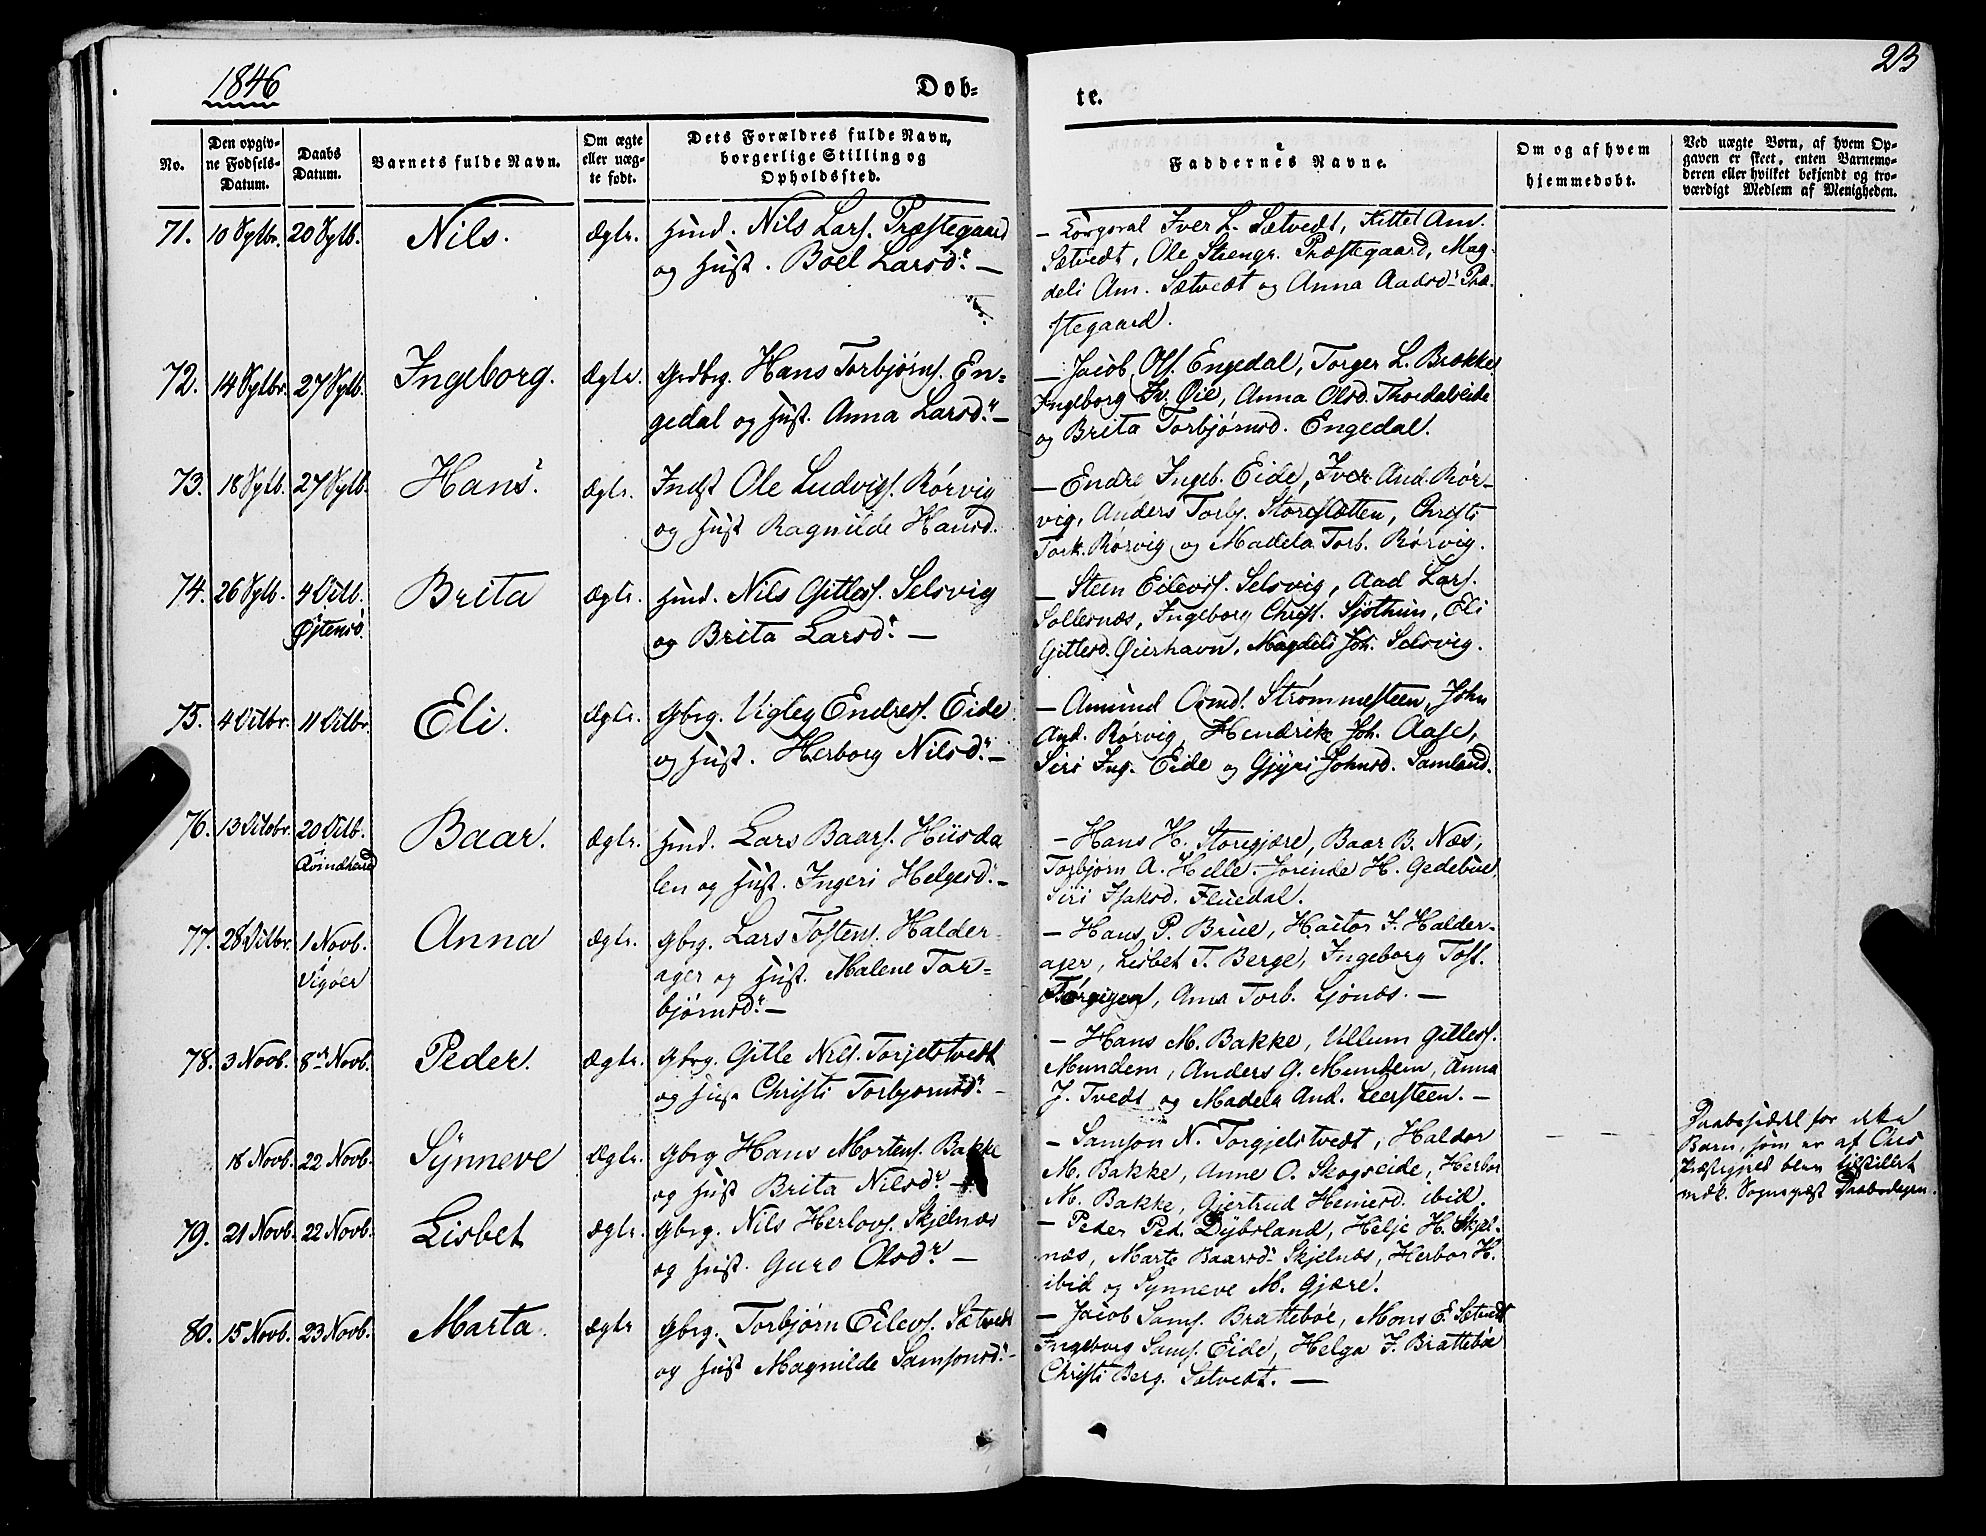 1846
Døb-
te.
23
No.
Den opgiv-
ne Fødsels-
Datum.
Daabs
Datum.
Barnets fulde Navn.
Om ægte
eller uæg-
te født.
Dets Forældres fulde Navn,
borgerlige Stilling og
Opholdssted.
Faddernes Navne.
Om og af hvem
hjemmedøbt.
Ved uægte Børn, af hvem Op-
gaven er skeet, enten Barnemo-
deren eller hvilket bekjendt og tro-
værdigt Medlem af Menigheden.
71. 10 Septbr. 20 Septb. Nils. Ægte. Huusmd. Nils Lars. Præstegaard
og Hust. Boel Larsdr. —
— Iver L. Sætvedt, Kittel Am.
Sætvedt, Ole Steengr. Præstegaard, Mag-
deli Am. Sætvedt og Anna Aadsdr Præ-
stegaard.
72. 14 Septbr. 27 Septb. Ingeborg. Ægte. Grdbrg. Hans Torbjørns. En-
gedal og Hust. Anna Larsdr. —
— Jacob Ols. Engedal, Torger L. Brokke
Ingeborg Iv. Øie, Anna Olsd.
og Brita Torbjørnsd. Engedal.
73. 18 Septb. 27 Septb. Hans. Ægte. Indst Ole Ludvigs. Rørvig
og Hust Ragnilde Hansd.
— Endre Ingeb. Eide, Iver And. Rør-
vig, Anders Torbj. Storesletten, Christi
Tork. Rørvig og Madela Torb. Rørvig.
74. 26 Septb. 4 Octb. Brita Ægte. Hmd. Nils Gitless. Selsvig
Østensø.
og Brita Larsdr. —
— Steen Eilevss. Selsvig, Aad Lars.
Sollesnæs, Ingeborg Christ. Sjothun, Eli
Gitlesd. Øierhavn, Magdeli Joh. Selsvig.
75. 4 Octbr. 11 Octbr. Eli. Ægte. Gbrg. Vigleg Endres. Eide
og Hust. Herborg Nilsdr. —
— Amund Strømmesteen, John
And. Rørvig, Hendrik Joh. Aase,
Siri Ing. Eide og Gjyri Johnsd. Samland.
76. 13 Octobr. 20 Octb. Baar. Ægte. Hmd. Lars Baars. Huusda
len og Hust. Ingeri Helgesdr. —
— Hans H. Storegjære, Baar B. Næs,
Torbjørn A. Helle, Jorinde H. Gedebøe,
Siri Isaksd. Fluedal.
77. 28 Octbr. 1 Novb. Anna Ægte. Gbrg. Lars Tostens. Halder-
Vigøer
ager og Hust. Malene Tor-
bjørnsdr. —
— Hans P. Brue, Hactor J. Halder-
ager, Lisbet T. Berge, Ingeborg Tost.
Ane Torb. Ljønes. —
78. 3 Novb. 8de Novb. Peder. Ægte. Gbrg. Gitle Nils. Torjelstvedt
og Hust Christi Torbjørnsdr. —
— Hans M. Bakke, Villum Gitless.
Mundem, Anders G. Mundem, Anna
J. Tvedt og Madela And. Leersteen. —
18 Novb. 22 Novb. Synneve Ægte. Gbrg Hans Mortens. Bakke
og Hust Brita Nilsdr —
— Samson N. Torgjelstvedt, Haldor
M. Bakke, Anne O. Skogseide, Herbor
M. Bakke, Gjertrud ibid.
Daabsseddel for dette
Barn, som er af
Præstegjeld blev tilstillet
vedk. Sognepræst Daabsdagen.
79. 21 Novb. 22 Novb. Lisbet Ægte. Gbrg. Nils Herlovs. Skjelnæs
og Hust. Guro Olsdr —
— Peder Ped. Dybsland, Helje H. Skjel-
næs, Marte Baarsdr Skjelnæs, Herbor H.
ibid og Synneve M. Gjære.
80. 15 Novb. 23 Novb. Marta. Ægte Gbrg. Torbjørn Eilevs. Sætvedt
og Hust Magnilde Samsonsdr. —
— Jacob Sams. Brattebøe, Mons E. Sætvedt
Ingeborg Sams. Eide, Helga J. Brattebøe
Christi Berg. Sætvedt. —